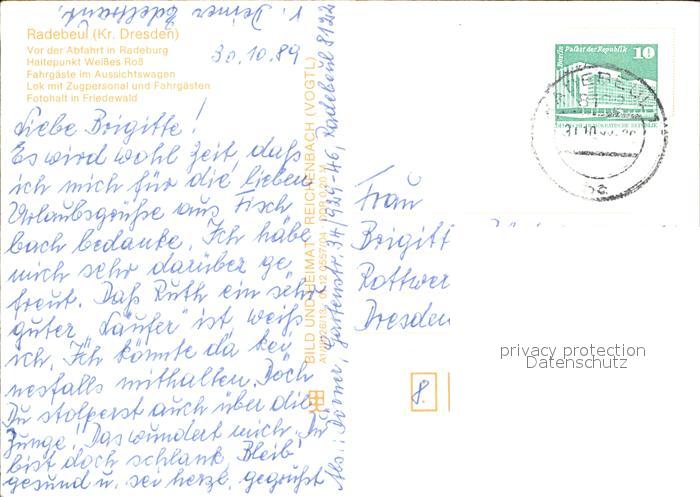 Radebeul (Kr. Dresden)
Vor der Abfahrt in Radeburg
Haltepunkt Weißes Roß
Fahrgäste im Aussichtswagen
Lok mit Zugpersonal und Fahrgästen
Fotohalt in Friedewald
30.10.89
Liebe Brigitte!
Es wird wohl Zeit, daß
ich mich für die lieben
Urlaubsgrüße aus Fisch
bach bedanke. Ich habe
mich sehr darüber ge
freut. Daß Ruth ein sehr
guter "Läufer" ist weiß
ich. Ich könnte da kei
nesfalls mithalten. Doch
Du stolperst auch über die
Zunge! Das wundert mich. Du
bist doch schlank. Bleib
gesund u. sei herzl. gegrüßt
v. Deiner
BILD UND HEIMAT REICHENBACH (VOGTL)
Abs.: Gartenstr. Radebeul 8122
Frau
Brigitt
Rottwer
Dresden
8.
Berlin Palast der Republik
10
privacy protection
Datenschutz